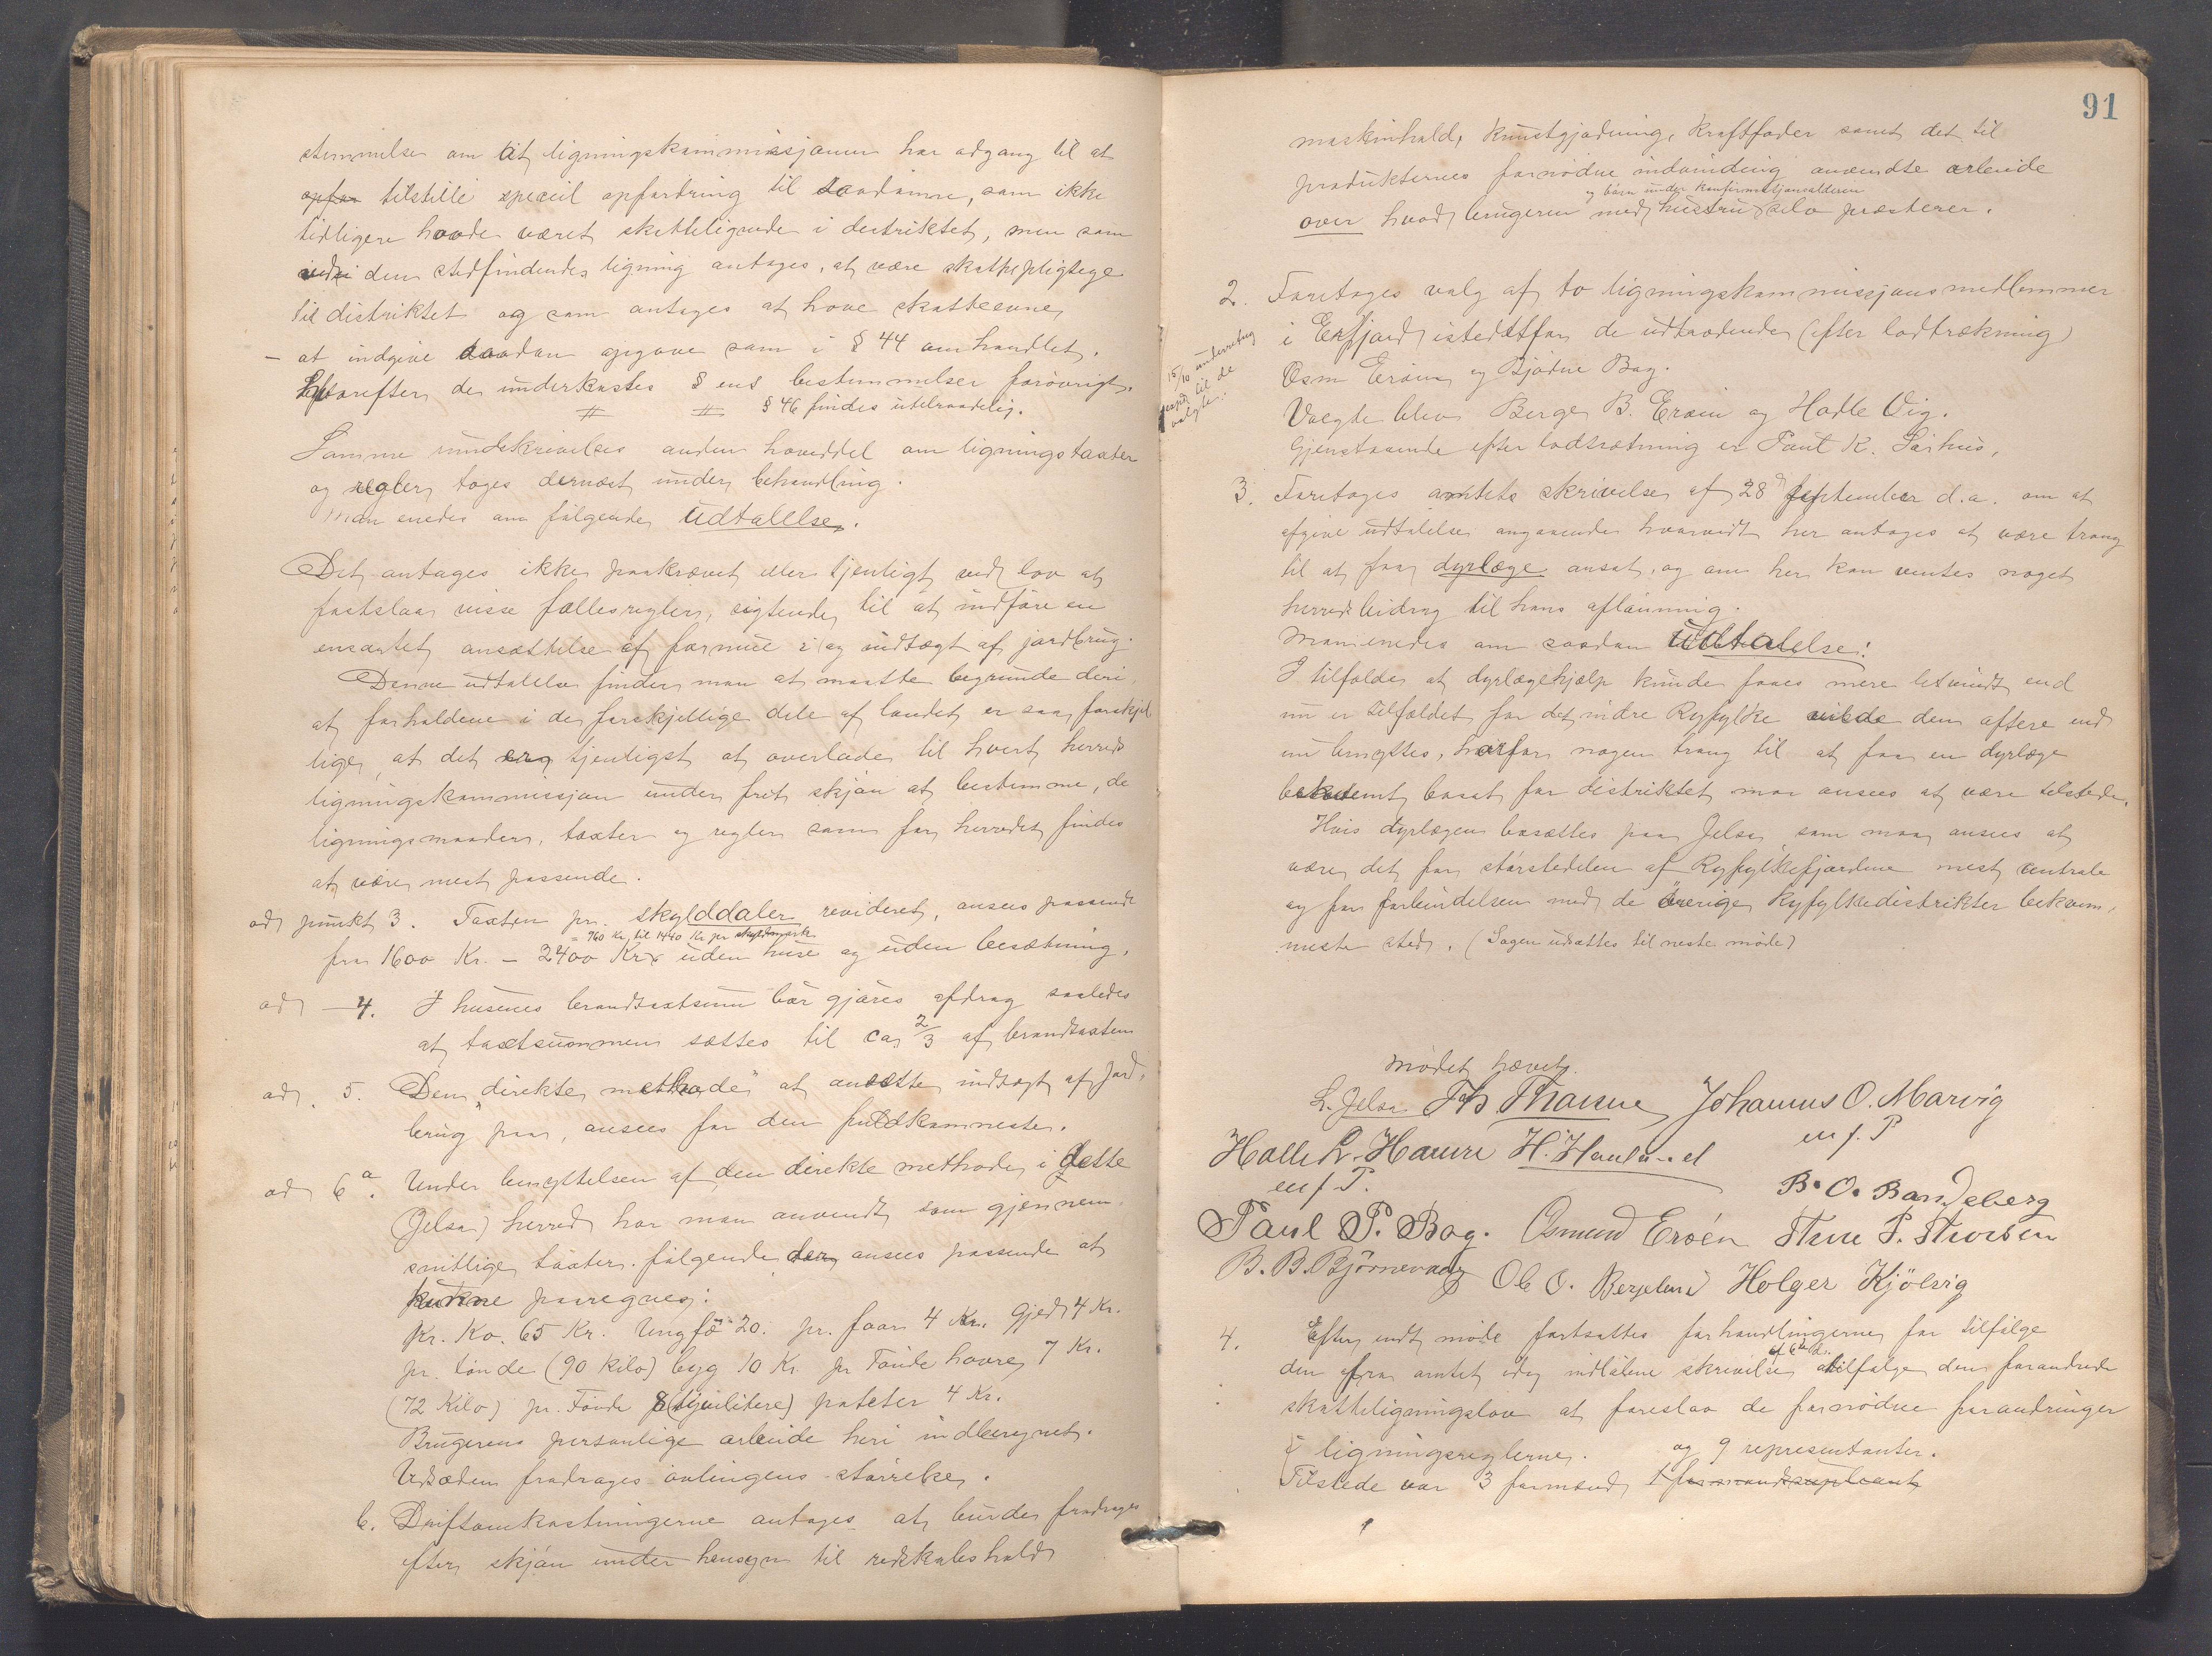 stemmelse om at ligningskommissjonen har adgang til at
opfor tilstille speciel opfordring til saadanne, som ikke
tidligere havde været skatteligende i destriktet, men som
ved den stedfindende ligning antages, at være skattepligtege
til distriktet og som antages at have skatteevne,
– at indgive saadan opgave som i § 44 omhandlet.
hvorefter de underkastes § ens bestemmelser forøvrigt.
§ 46 findes utilraadelig.
Samme rundskrivelses anden hoveddel om ligningstaxter
og regler, toges dernæst under behandling.
Man enedes om følgende udtalelse.
Det antages ikke paakrævet eller tjenligt ved lov at
fastslaa visse fællesregler, sigtende til at indføre en
ensartet ansættelse af formue i og indtægt af jordbrug.
Denne udtalelse finder man at maatte begrunde deri,
at forholdene i de forskjellige dele af landet er saa forskjel
lige, at det er tjenligst at overlade til hvert herreds
ligningskommissjon under frit skjøn at bestemme, de
ligningsmaader, taxter og regler som for herredet findes
at være mest passende.
ad punkt 3. Taxten pr. skylddaler revideret, ansees passende
= 960 Kr. til 1440 Kr pr skyldmark
fra 1600 Kr. – 2400 Kr x uden huse og uden besætning.
ad — 4. I husenes brandtaxtsum bør gjøres afdrag saaledes
at taxtsummen sættes til ca 2/3 af brandtaxten
ad . 5. Den "direkte methode" at ansætte indtægt af Jord,
brug paa, ansees for den fuldkomneste.
ad 6 a. Under benyttelsen af den direkte methode i dette
(Jelsa) herred har man anvendt som gjennem
snitlige taxter følgende der ansees passende at
kunne paaregnes:
Pr. Ko. 65 Kr. Ungfæ 20. pr. faar 4 Kr. Gjed 4 Kr.
pr. tønde (90 kilo) byg 10 Kr. pr Tønde havre 7 Kr.
(72 Kilo) pr. Tønde poteter 4 Kr.
Brugerens personlige arbeide heri indberegnet.
Udsæden fradrages avlingens størrelse.
b. Driftsomkostningerne antages at burde fradrages
efter skjøn under hensyn til redskabshold
91
maskinhald, kunstgjødning, kraftfoder samt det til
produkternes fornødne indvinding anvendte arbeide
og børn under konfirmasjonsalderen
over hvad brugeren med hustru selv præsterer.
2. Foretoges valg af to ligningskommissjonsmedlemmer
i Erfjord istedetfor de udtrædende (efter lodtrækning)
Osm Erøen og Bjødne Bag.
Valgte blev Berge B. Erøen og Hadle Vig.
Gjenstaaende efter lodtrætning er Paul K. Sørhus,
15/10 underretning
til de
valgte.
3. Foretoges amtets skrivelse af 28de September d.a. om at
afgive udtalelse angaaende hvorvidt her antages at være trang
til at faa dyrlæge ansat, og om her kan ventes noget
herredsbidrag til hans aflønning.
Man enedes om saadan udtalelse:
I tilfælde at dyrlægehjælp kunde faaes mere letvindt end
nu er tilfældet for det indre Ryfylke vilde den oftere end
nu benyttes, hvorfor nogen trang til at faa en dyrlæge
bestemt bosat for distriktet maa ansees at være tilstede.
Hvis dyrlægen bosættes paa Jelsa, som maa ansees at
være det for størstedelen af Ryfylkefjordene mest centrale
og for forbindelsen med de øvrige Ryfylkedistrikter bekvem,
meste sted. (Sagen udsættes til neste møde)
Mødet hævet.
L. Jelsa Th Thanne Johannus O. Marvig
m f. P
Halle L. Hauvre H. Hauland
m f P.
B. O. Bandeberg
Paul P. Bog. Osmund Erøen Thore P. Thorsen
B. B. Bjørnevaag Ole O. Berjeland Holger Kjølvig
4. Efter endt møde fortsattes forhandlingerne for tilfølge
af 6te ds.
den fra amtet idag indløbne skrivelse tilfølge den forandrede
skatteligningslov at foreslaa de fornødne forandringer
i ligningsreglerne. og 9 representanter.
Tilstede var 3 formænd, 1 formandsupleant